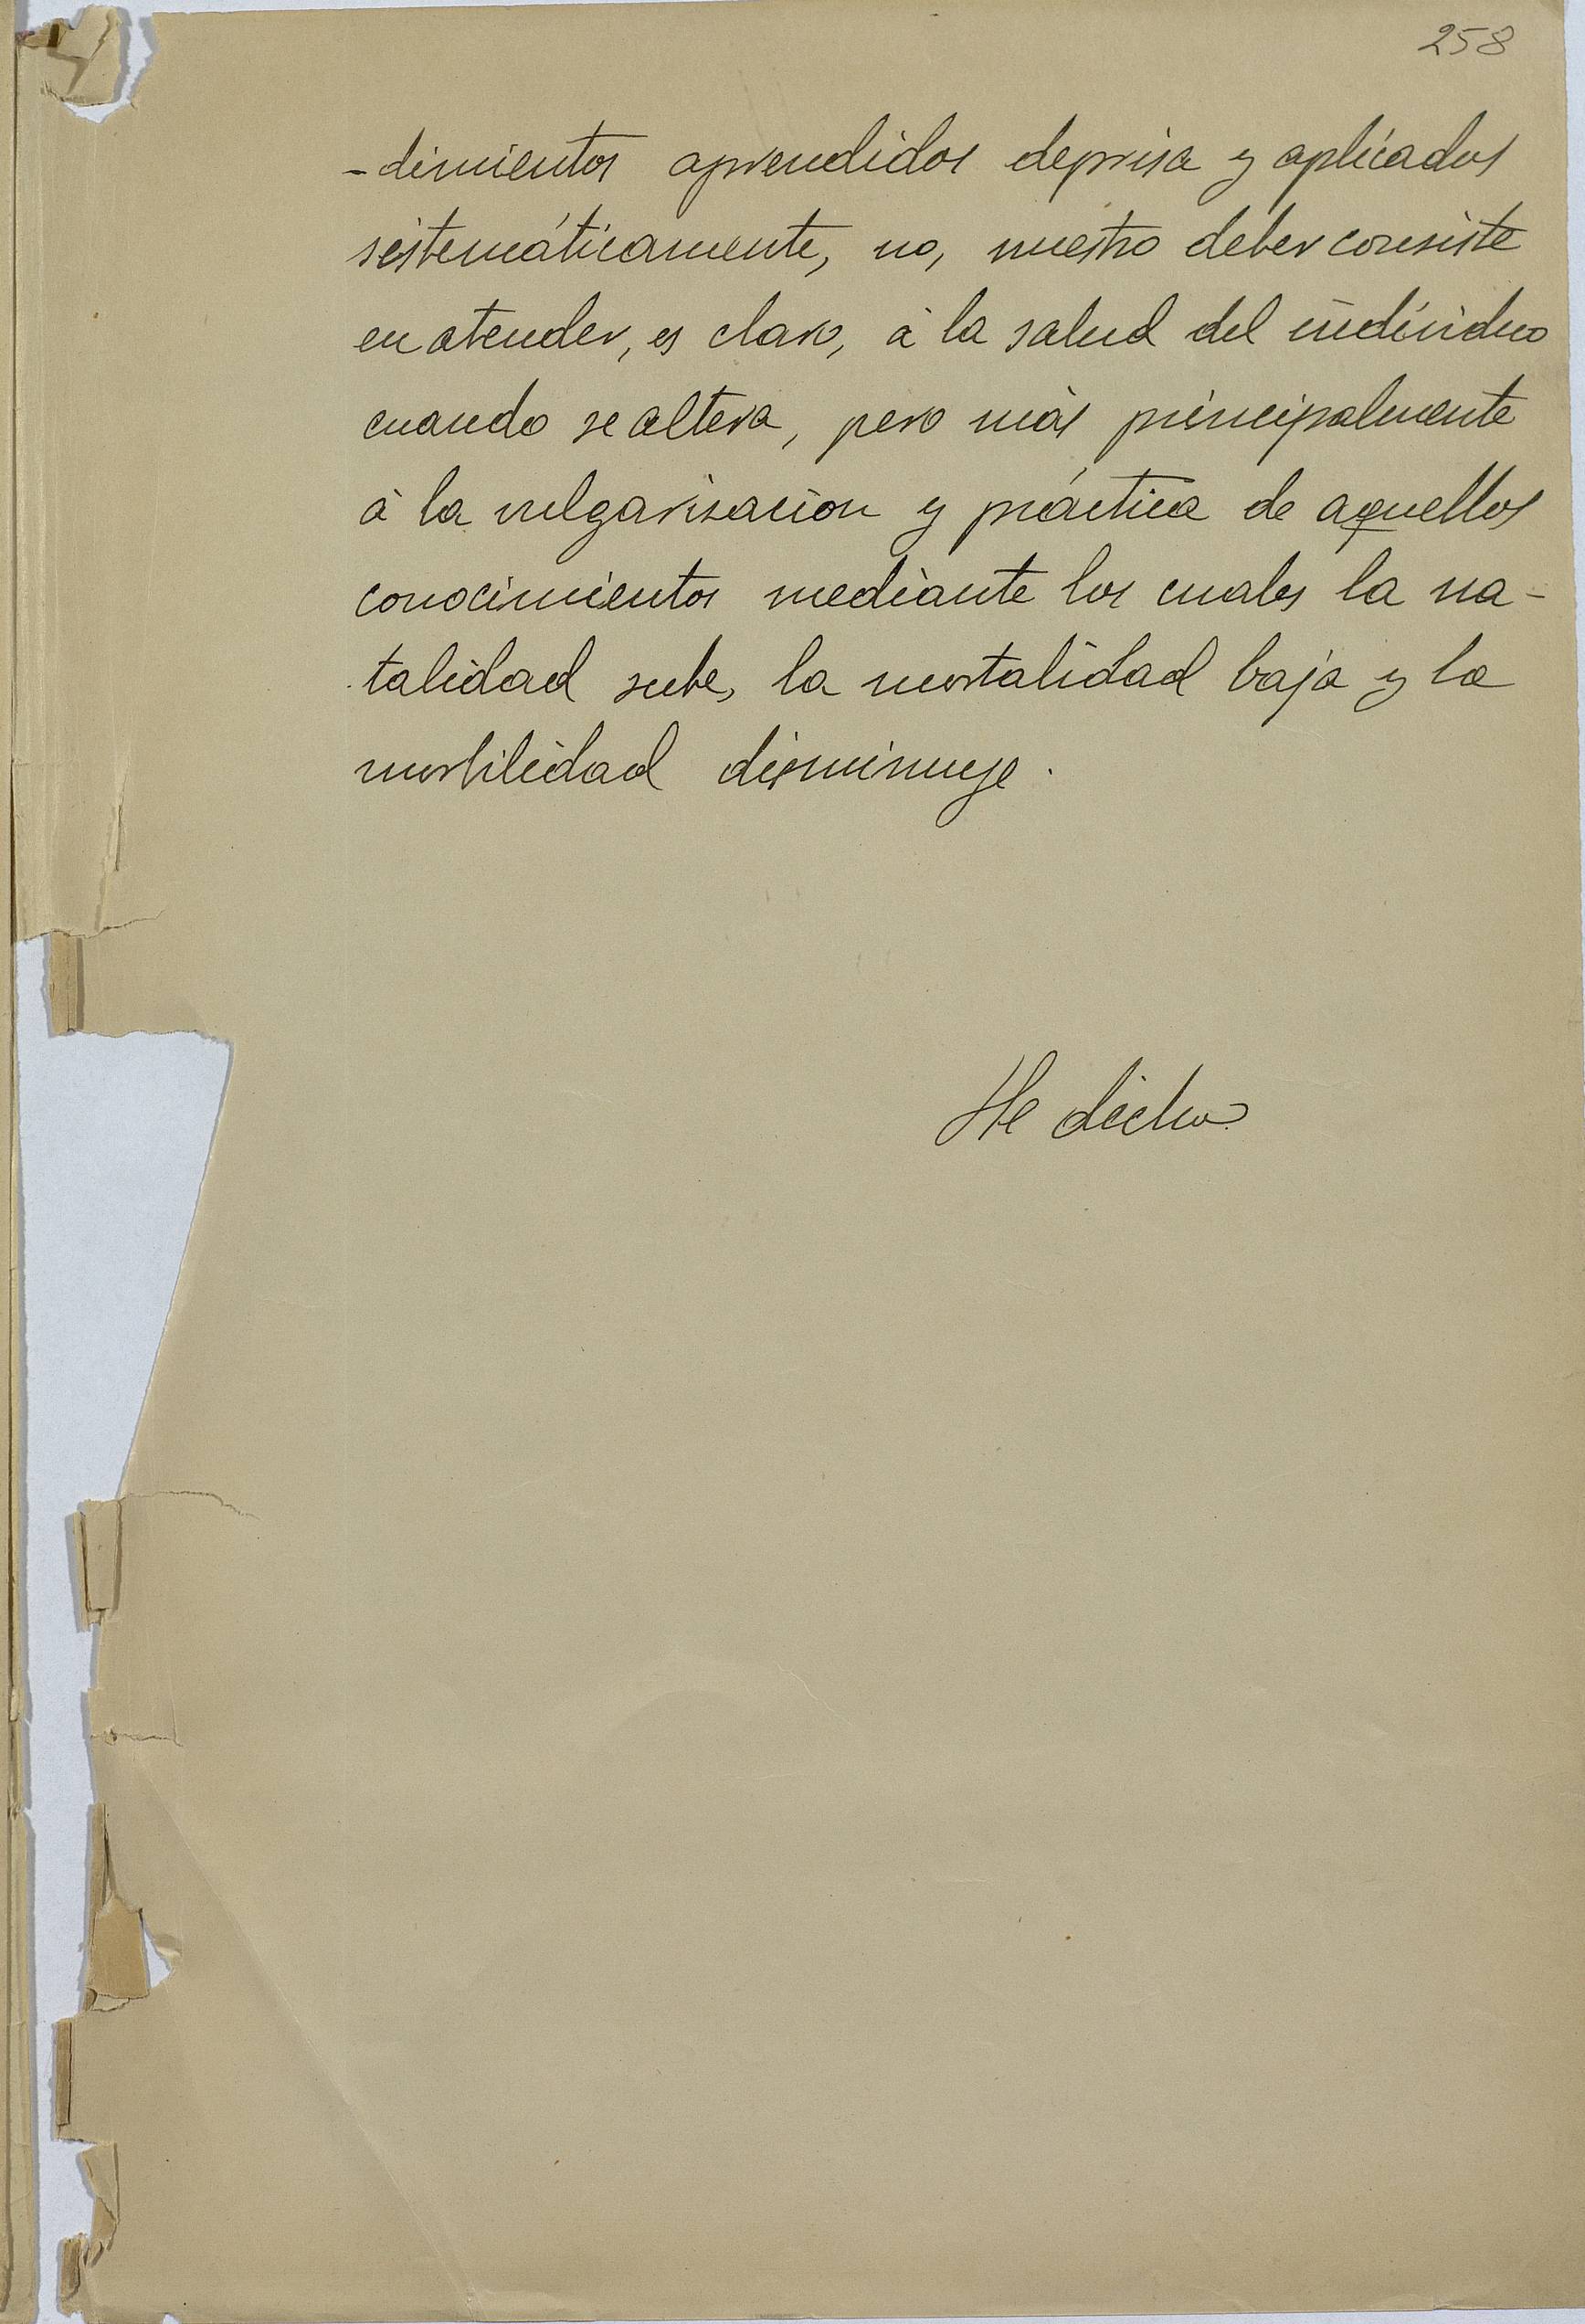 258
-dimientos aprendidos deprisa y aplicados
sistemáticamente, no, nuestro deber consiste
en atender, es claro, à la salud del individuo
cuando se altera, pero más principalmente
à la vulgarisación y práctica de aquellos
conocimientos mediante los cuales la na-
talidad sube, la mortalidad baja y la
morbilidad disminuye.
He dicho.